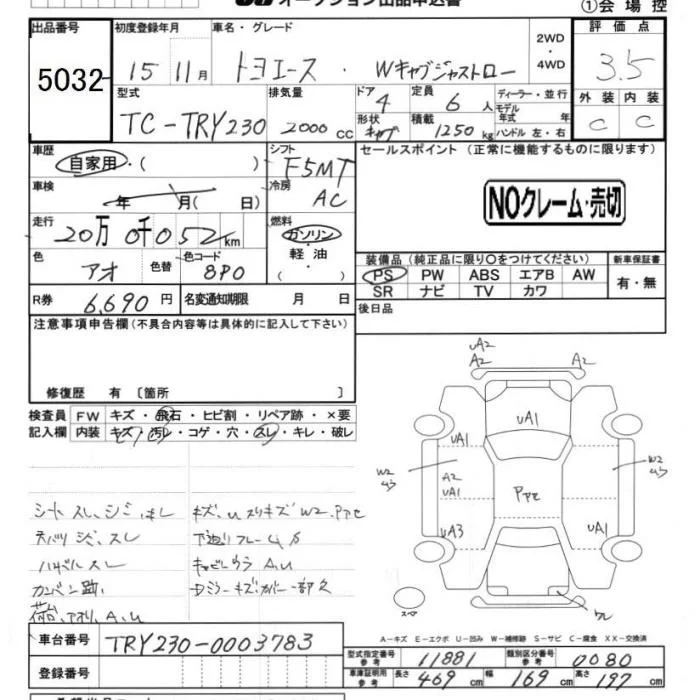 オークション出品申込書
①会場控
出品番号
5032
初度登録年月
15年 11月
車名・グレード
トヨエース・Wキャブジャストロー
2WD・4WD
評価点
3.5
型式
TC-TRY230
排気量
2000 cc
ドア
4
形状
キャブ
定員
6人
積載
1250 kg
ディーラー・並行
モデル年式 年
ハンドル 左・右
外装 内装
C C
車歴
自家用・( )
シフト
F5MT
セールスポイント(正常に機能するものに限ります)
NOクレーム・売切
車検
年 月( 日)
冷房
AC
走行
20万0千052km
燃料
ガソリン・軽油・( )
色
アオ
色替
色コード
8P0
装備品(純正品に限り○をつけてください)
PS PW ABS エアB AW
SR ナビ TV カワ
新車保証書
有・無
R券
6,690円
名変通知期限 月 日
後日品
注意事項申告欄(不具合内容等は具体的に記入して下さい)
修復歴 有 [箇所 ]
検査員記入欄
FW キズ・飛石・ヒビ割・リペア跡・×要
内装 キズ・汚レ・コゲ・穴・スレ・キレ・破レ
シートスレ、シミ
ハンドルスレ
カンバン跡
荷台、アオリ、A、U
キズ、U スリキズ W2
下廻り フレーム サ
A2 UA2
A2
UA1
UA1
W2
A2
UA1
UA3
UA1
W2
スペ
A-キズ E-エクボ U-凹み W-補修跡 S-サビ C-腐食 XX-交換済
車台番号
TRY230-0003783
登録番号
型式指定番号 参考
11881
類別区分番号 参考
0080
車庫証明用 参考
長さ 469 cm
幅 169 cm
高さ 197 cm